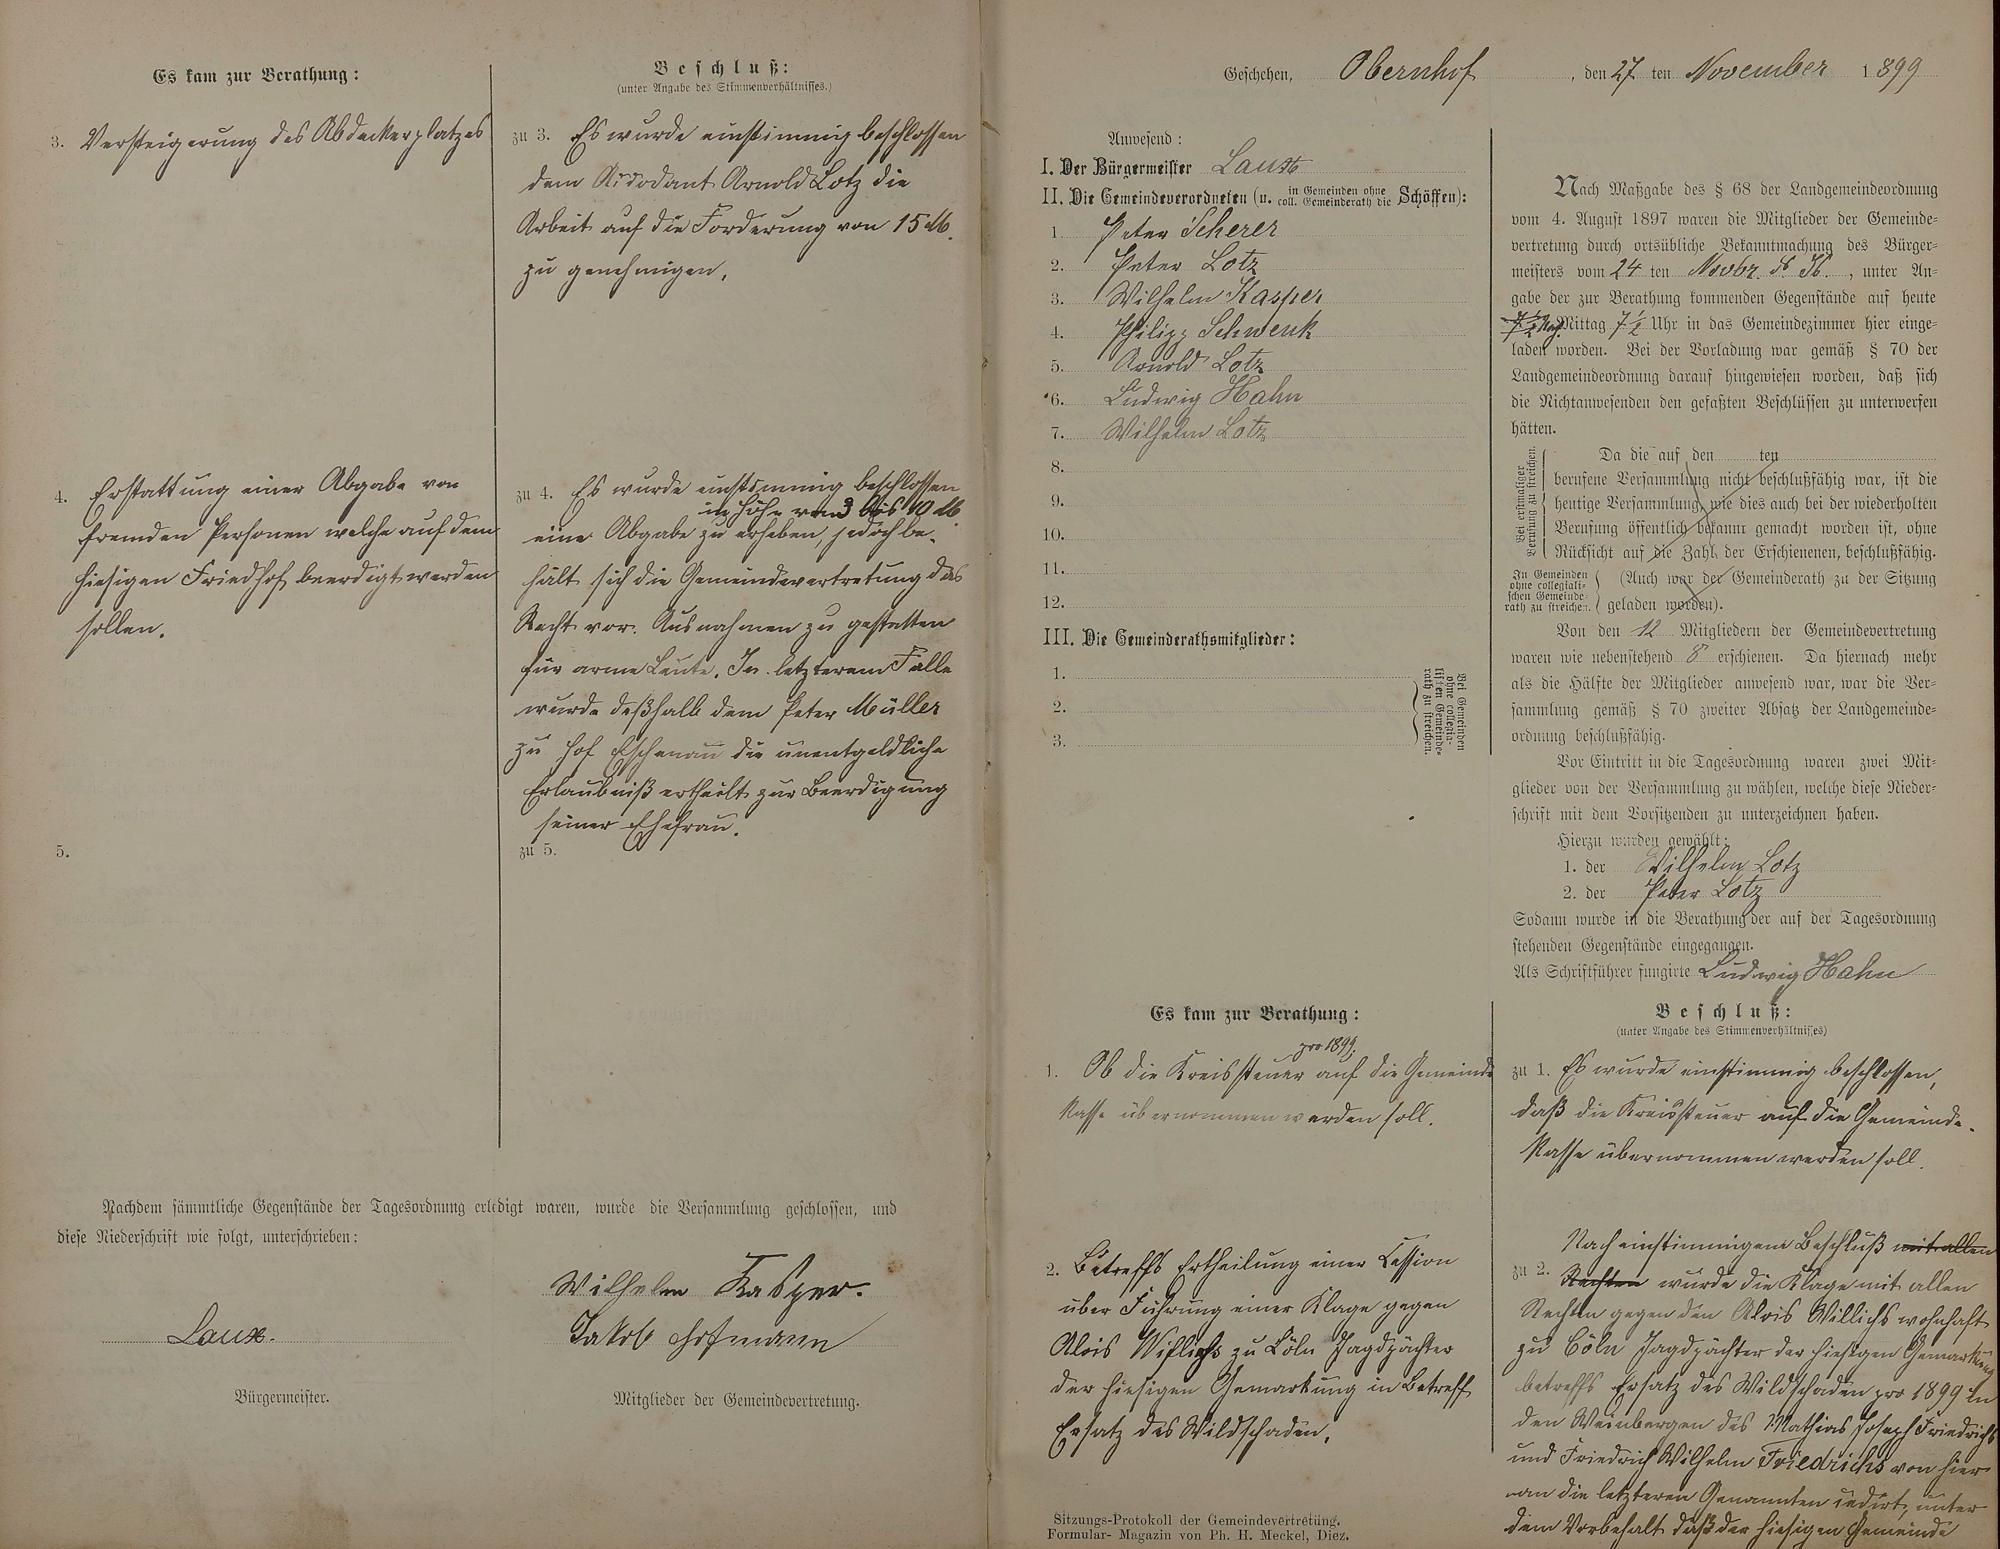 Es kam zur Berathung:
Beschluß:
(unter Angabe des Stimmenverhältnisses.)
3. Versteigerung des Abdeckerplatzes
zu 3. Es wurde einstimmig beschlossen
dem Arnold Lotz die
Arbeit auf die Forderung von 15 M.
zu genehmigen.
4. Erstattung einer Abgabe von
fremden Personen welche auf dem
hiesigen Friedhof beerdigt werden
sollen.
zu 4. Es wurde einstimmig beschlossen
in Höhe von 3 bis 10 M.
eine Abgabe zu erheben, jedoch be-
hält sich die Gemeindevertretung das
Recht vor. Ausnahmen zu gestatten
für arme Leute. In letzterem Falle
wurde deßhalb dem Peter Müller
zu Hof Eschenau die unentgeldliche
Erlaubniß ertheilt zur Beerdigung
seiner Ehefrau.
5.
zu 5.
Nachdem sämmtliche Gegenstände der Tagesordnung erledigt waren, wurde die Versammlung geschlossen, und
diese Niederschrift wie folgt, unterschrieben:
Wilhelm Kasper.
Laux.
Jakob Hofmann
Bürgermeister.
Mitglieder der Gemeindevertretung.
Geschehen, Obernhof, den 27 ten November 1899
Anwesend:
I. Der Bürgermeister Laux
II. Die Gemeindeverordneten (u. in Gemeinden ohne coll. Gemeinderath die Schöffen):
1. Peter Scherer
2. Peter Lotz
3. Wilhelm Kasper
4. Philipp Schwenk
5. Arnold Lotz
6. Ludwig Hahn
7. Wilhelm Lotz
8.
9.
10.
11.
12.
III. Die Gemeinderathsmitglieder:
1.
2.
3.
Bei Gemeinden
ohne collegia-
lischen Gemeinde-
rath zu streichen.
Nach Maßgabe des § 68 der Landgemeindeordnung
vom 4. August 1897 waren die Mitglieder der Gemeinde-
vertretung durch ortsübliche Bekanntmachung des Bürger-
meisters vom 24 ten Novbr. d. J., unter An-
gabe der zur Berathung kommenden Gegenstände auf heute
Mittag 7½ Uhr in das Gemeindezimmer hier einge-
laden worden. Bei der Vorladung war gemäß § 70 der
Landgemeindeordnung darauf hingewiesen worden, daß sich
die Nichtanwesenden den gefaßten Beschlüssen zu unterwerfen
hätten.
Bei erstmaliger
Berufung zu streichen.
Da die auf den ten
berufene Versammlung nicht beschlußfähig war, ist die
heutige Versammlung, wie dies auch bei der wiederholten
Berufung öffentlich bekannt gemacht worden ist, ohne
Rücksicht auf die Zahl der Erschienenen, beschlußfähig.
In Gemeinden
ohne collegiali-
schen Gemeinde-
rath zu streichen.
(Auch war der Gemeinderath zu der Sitzung
geladen worden).
Von den 12 Mitgliedern der Gemeindevertretung
waren wie nebenstehend 8 erschienen. Da hiernach mehr
als die Hälfte der Mitglieder anwesend war, war die Ver-
sammlung gemäß § 70 zweiter Absatz der Landgemeinde-
ordnung beschlußfähig.
Vor Eintritt in die Tagesordnung waren zwei Mit-
glieder von der Versammlung zu wählen, welche diese Nieder-
schrift mit dem Vorsitzenden zu unterzeichnen haben.
Hierzu wurden gewählt:
1. der Wilhelm Lotz
2. der Peter Lotz
Sodann wurde in die Berathung der auf der Tagesordnung
stehenden Gegenstände eingegangen.
Als Schriftführer fungirte Ludwig Hahn
Es kam zur Berathung:
Beschluß:
(unter Angabe des Stimmenverhältnisses)
pro 1899.
1. Ob die Kreissteuer auf die Gemeinde
Kasse übernommen werden soll.
zu 1. Es wurde einstimmig beschlossen,
daß die Kreissteuer auf die Gemeinde-
Kasse übernommen werden soll.
2. Betreffs Ertheilung einer Cession
über Führung einer Klage gegen
Alois Willichs zu Cöln Jagdpächter
der hiesigen Gemarkung in Betreff
Ersatz des Wildschaden.
Nach einstimmigem Beschluß mit allen
zu 2. Rechten wurde die Klage mit allen
Rechten gegen den Alois Willichs wohnhaft
zu Cöln Jagdpächter der hiesigen Gemarkung
betreffs Ersatz des Wildschaden pro 1899 in
den Weinbergen des Mathias Joseph Friedrichs
und Friedrich Wilhelm Friedrichs von hier
an die letzteren Genannten cedirt, unter
dem Vorbehalt daß der hiesigen Gemeinde
Sitzungs-Protokoll der Gemeindevertretung.
Formular-Magazin von Ph. H. Meckel, Diez.